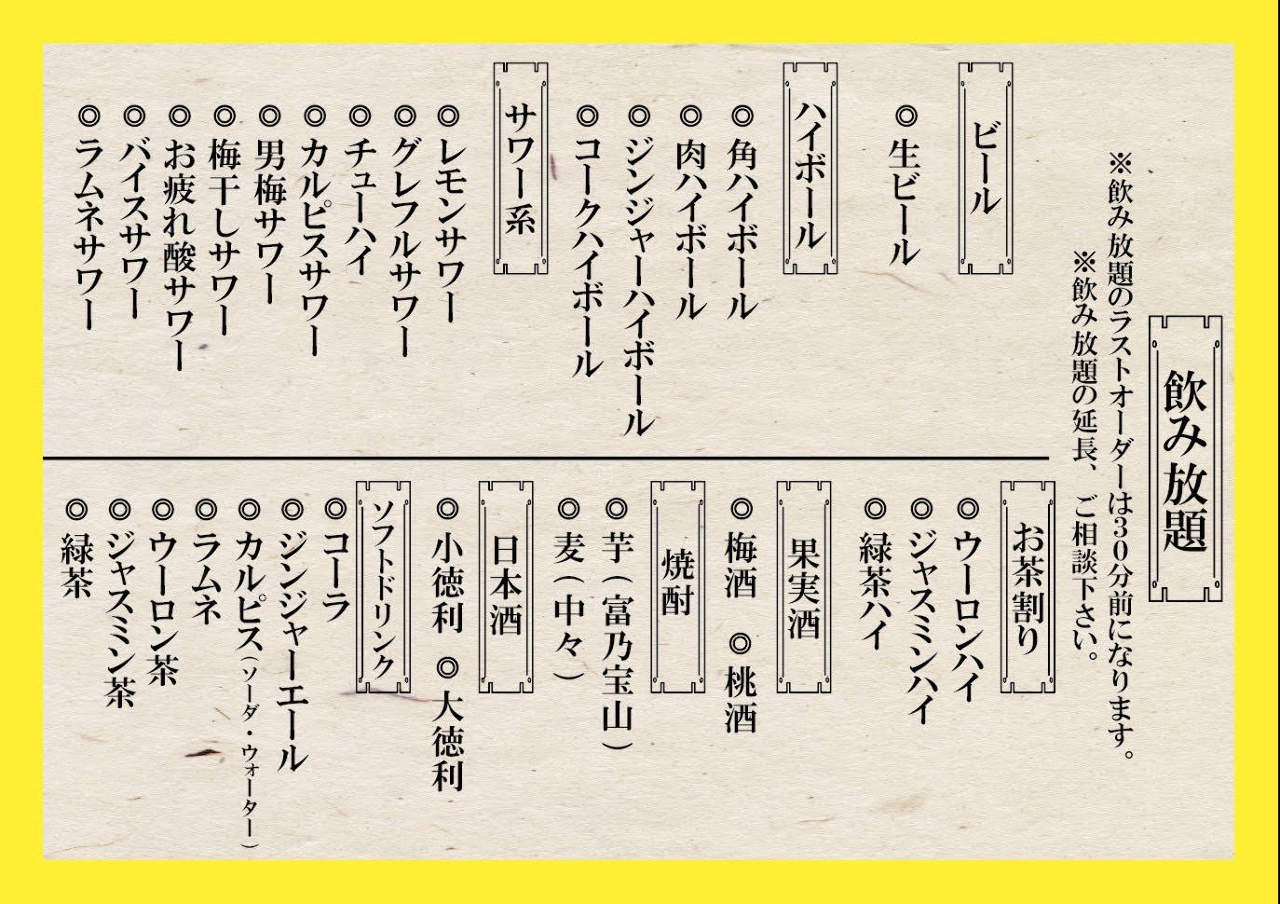 飲み放題
※飲み放題のラストオーダーは30分前になります。
※飲み放題の延長、ご相談下さい。
ビール
◎生ビール
ハイボール
◎角ハイボール
◎肉ハイボール
◎ジンジャーハイボール
◎コークハイボール
サワー系
◎レモンサワー
◎グレフルサワー
◎チューハイ
◎カルピスサワー
◎男梅サワー
◎梅干しサワー
◎お疲れ酸サワー
◎バイスサワー
◎ラムネサワー
お茶割り
◎ウーロンハイ
◎ジャスミンハイ
◎緑茶ハイ
果実酒
◎梅酒 ◎桃酒
焼酎
◎芋（富乃宝山）
◎麦（中々）
日本酒
◎小徳利 ◎大徳利
ソフトドリンク
◎コーラ
◎ジンジャーエール
◎カルピス（ソーダ・ウォーター）
◎ラムネ
◎ウーロン茶
◎ジャスミン茶
◎緑茶